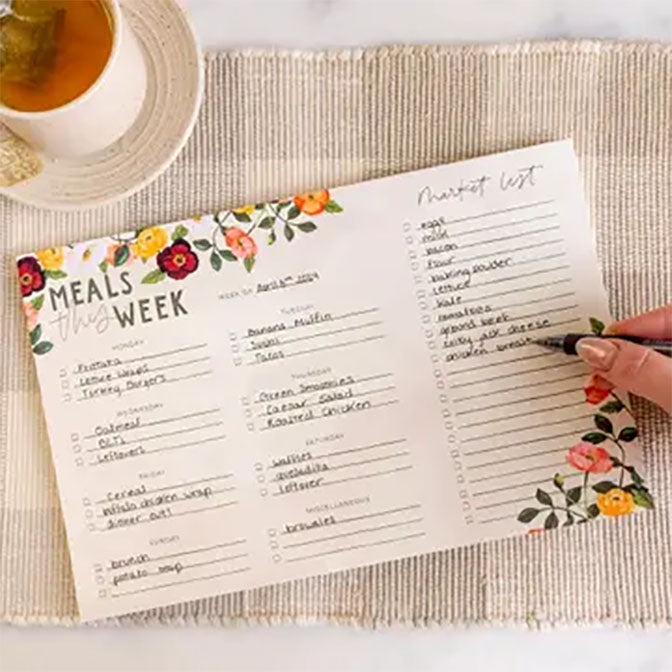 MEALS
this WEEK
WEEK OF April 8th 2024
MONDAY
Frittata
Lettuce Wraps
Turkey Burgers
TUESDAY
Banana Muffin
Sushi
Tacos
WEDNESDAY
Oatmeal
BLTs
Leftovers
THURSDAY
Green Smoothies
Caesar Salad
Roasted Chicken
FRIDAY
Cereal
buffalo chicken wrap
dinner out!
SATURDAY
waffles
quesadilla
leftover
SUNDAY
brunch
potato soup
MISCELLANEOUS
brownies
market list
eggs
milk
bacon
flour
baking powder
lettuce
kale
tomatoes
ground beef
colby jack cheese
chicken breast